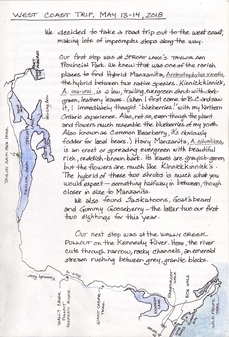 WEST COAST TRIP, MAY 13-14, 2018
We decided to take a road trip out to the west coast,
making lots of impromptu stops along the way.
Our first stop was at SPROAT LAKE'S TAYLOR ARM
Provincial Park. We knew that was one of the nearish
places to find Hybrid Manzanita, Arctostaphylos x media,
the hybrid between two native species. Kinnikinnick,
A. uva-ursi, is a low, trailing evergreen shrub with dark
green, leathery leaves. (When I first came to B.C. and saw
it, I immediately thought "blueberries" with my Northern
Ontario experience. Alas, not so, even though the plant
and flowers much resemble the blueberries of my youth.
Also known as Common Bearberry, it's obviously
fodder for local bears.) Hairy Manzanita, A. columbiana,
is an erect or spreading evergreen with beautiful
rich, reddish-brown bark. Its leaves are greyish-green,
but the flowers are much like Kinnikinnick's.
The hybrid of these two shrubs is much what you
would expect – something halfway in between, though
closer in size to Manzanita.
We also found Saskatoons, Goat's beard and
Gummy Gooseberry – the latter two our first
two sightings for this year.
Our next stop was at the WALLY CREEK
PULLOUT on the Kennedy River. Here, the river
cuts through narrow, rocky channels, an emerald
stream rushing between grey, granite blocks.
TAYLOR ARM PROV. PARK
WALLY CREEK
KENNEDY